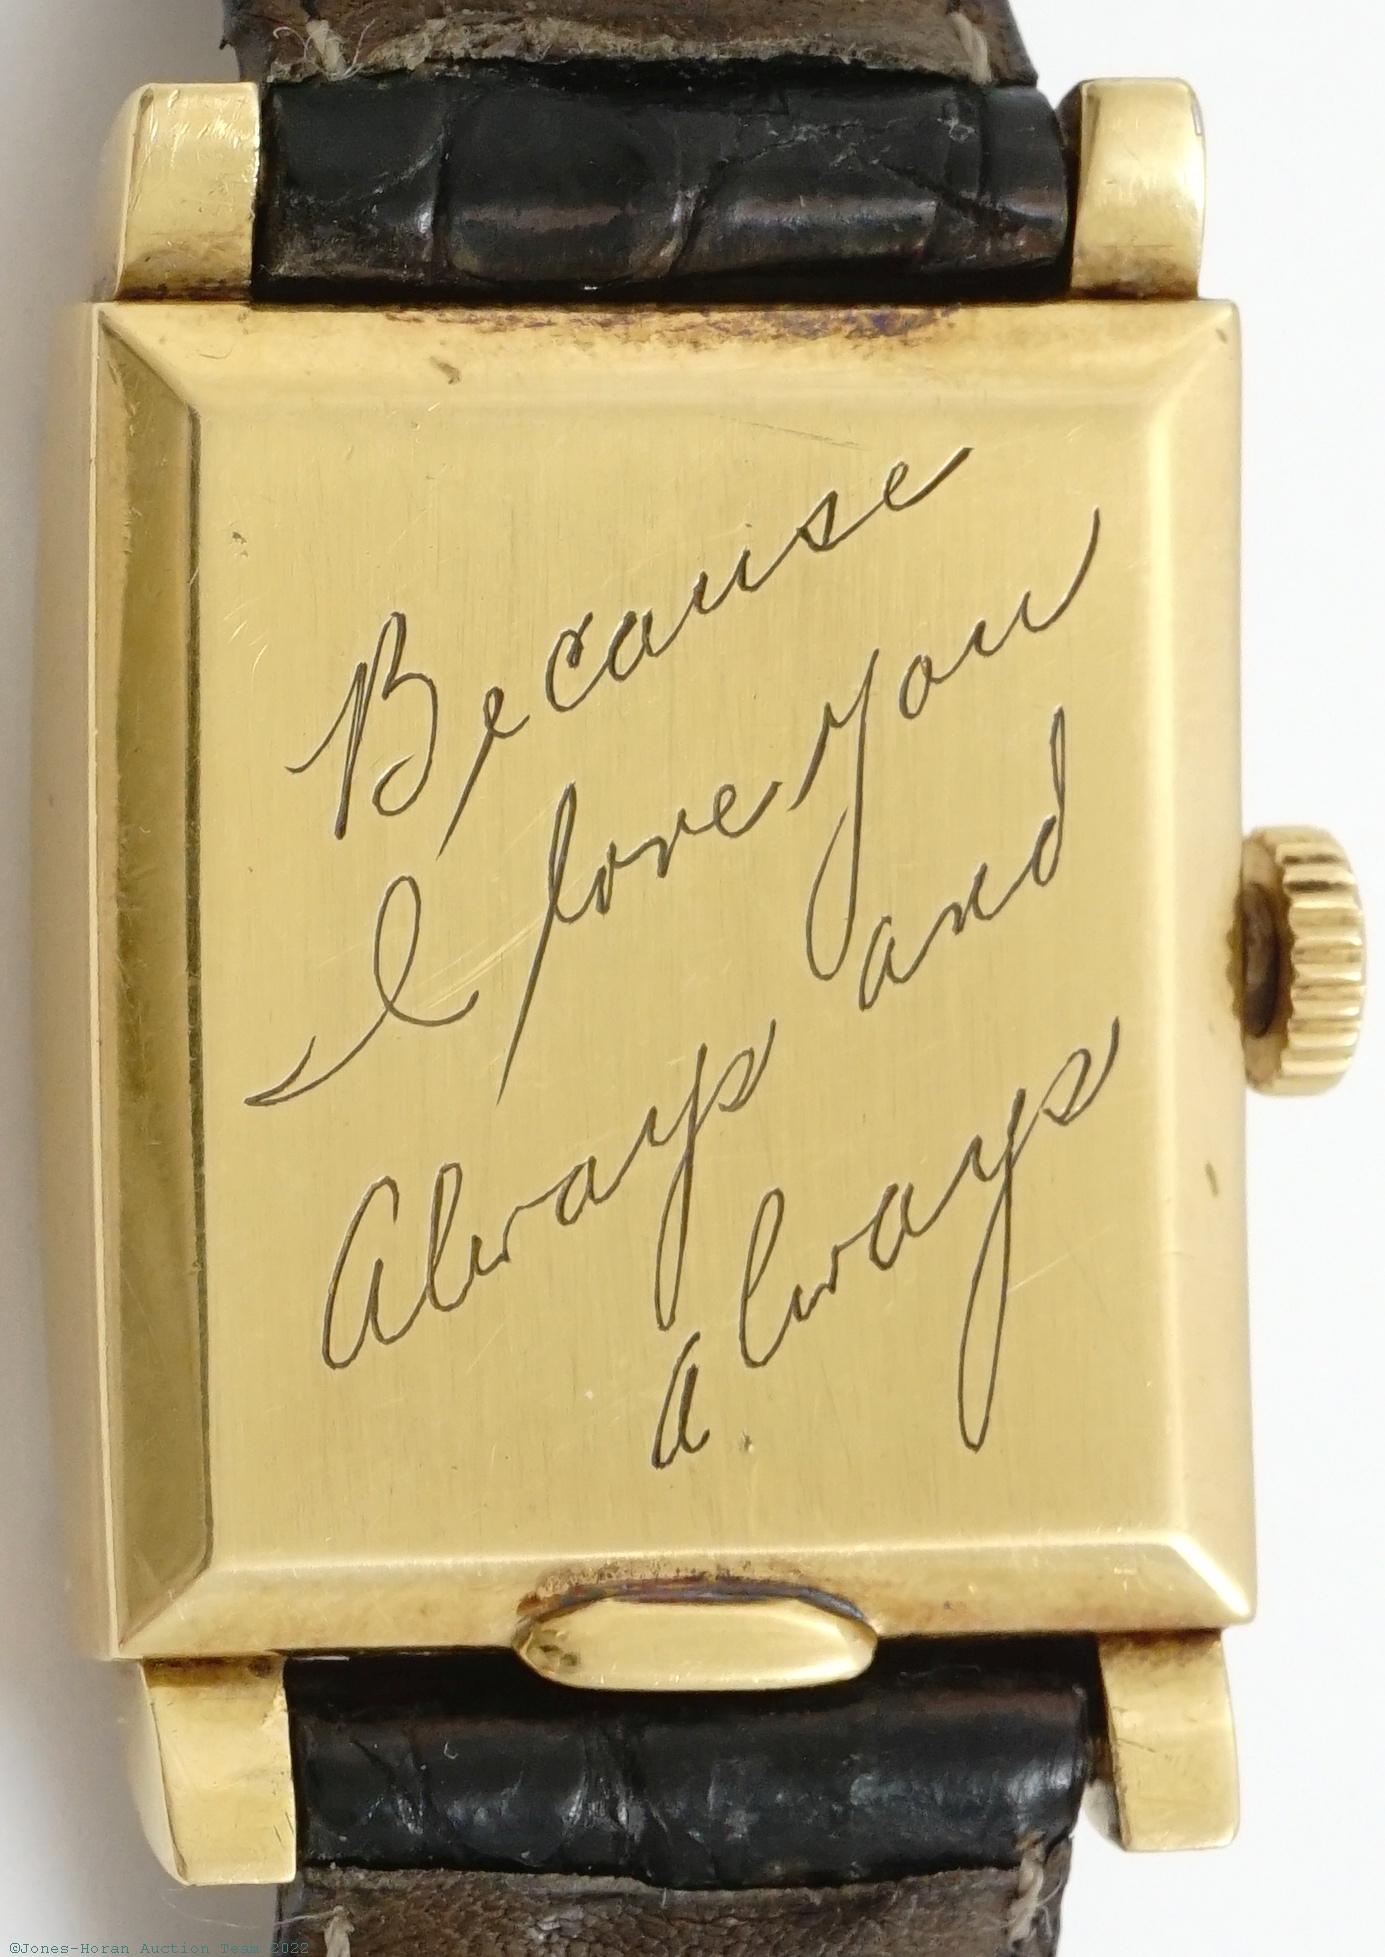 Because
I love you
Always and
always
A.
©Jones-Horan Auction Team 2022